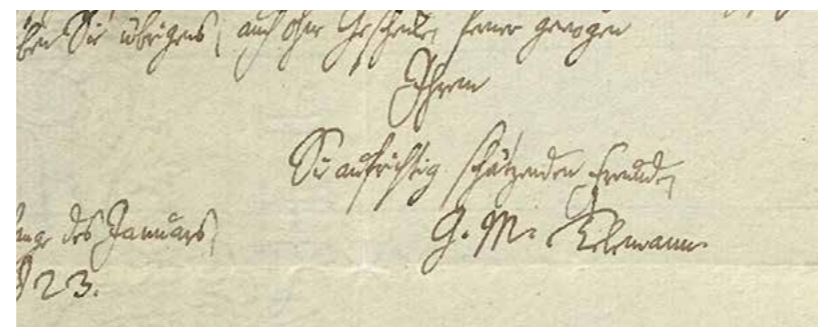 ben Sie übrigens, auch ohne Geschenke, ferner gewogen
Ihrem
Sie aufrichtig schätzenden Freunde,
des Januars,
G. M. Telemann.
823.